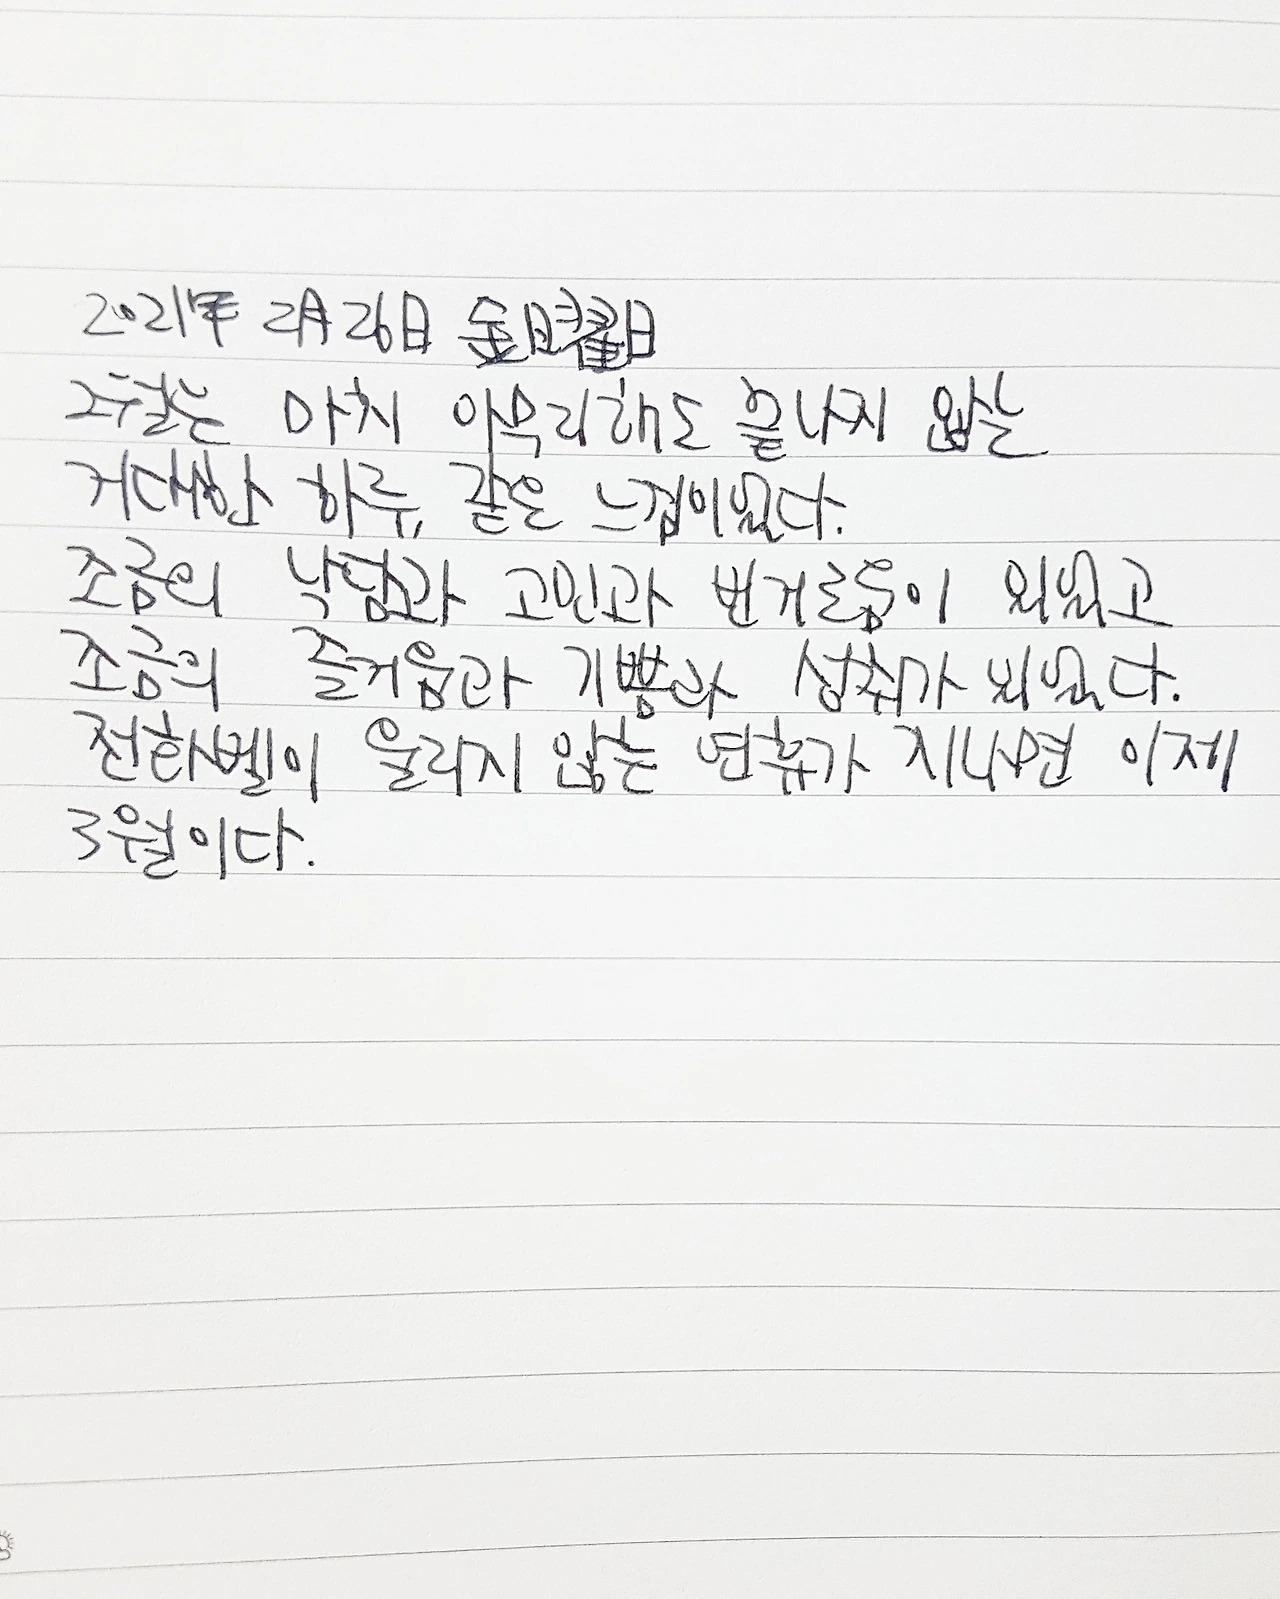 2021年 2月 26日 金曜日
2월은 마치 아무리해도 끝나지 않는
거대한 하루, 같은 느낌이었다.
조금의 낙담과 고민과 번거로움이 있었고
조금의 즐거움과 기쁨과 성취가 있었다.
전화벨이 울리지 않는 연휴가 지나면 이제
3월이다.